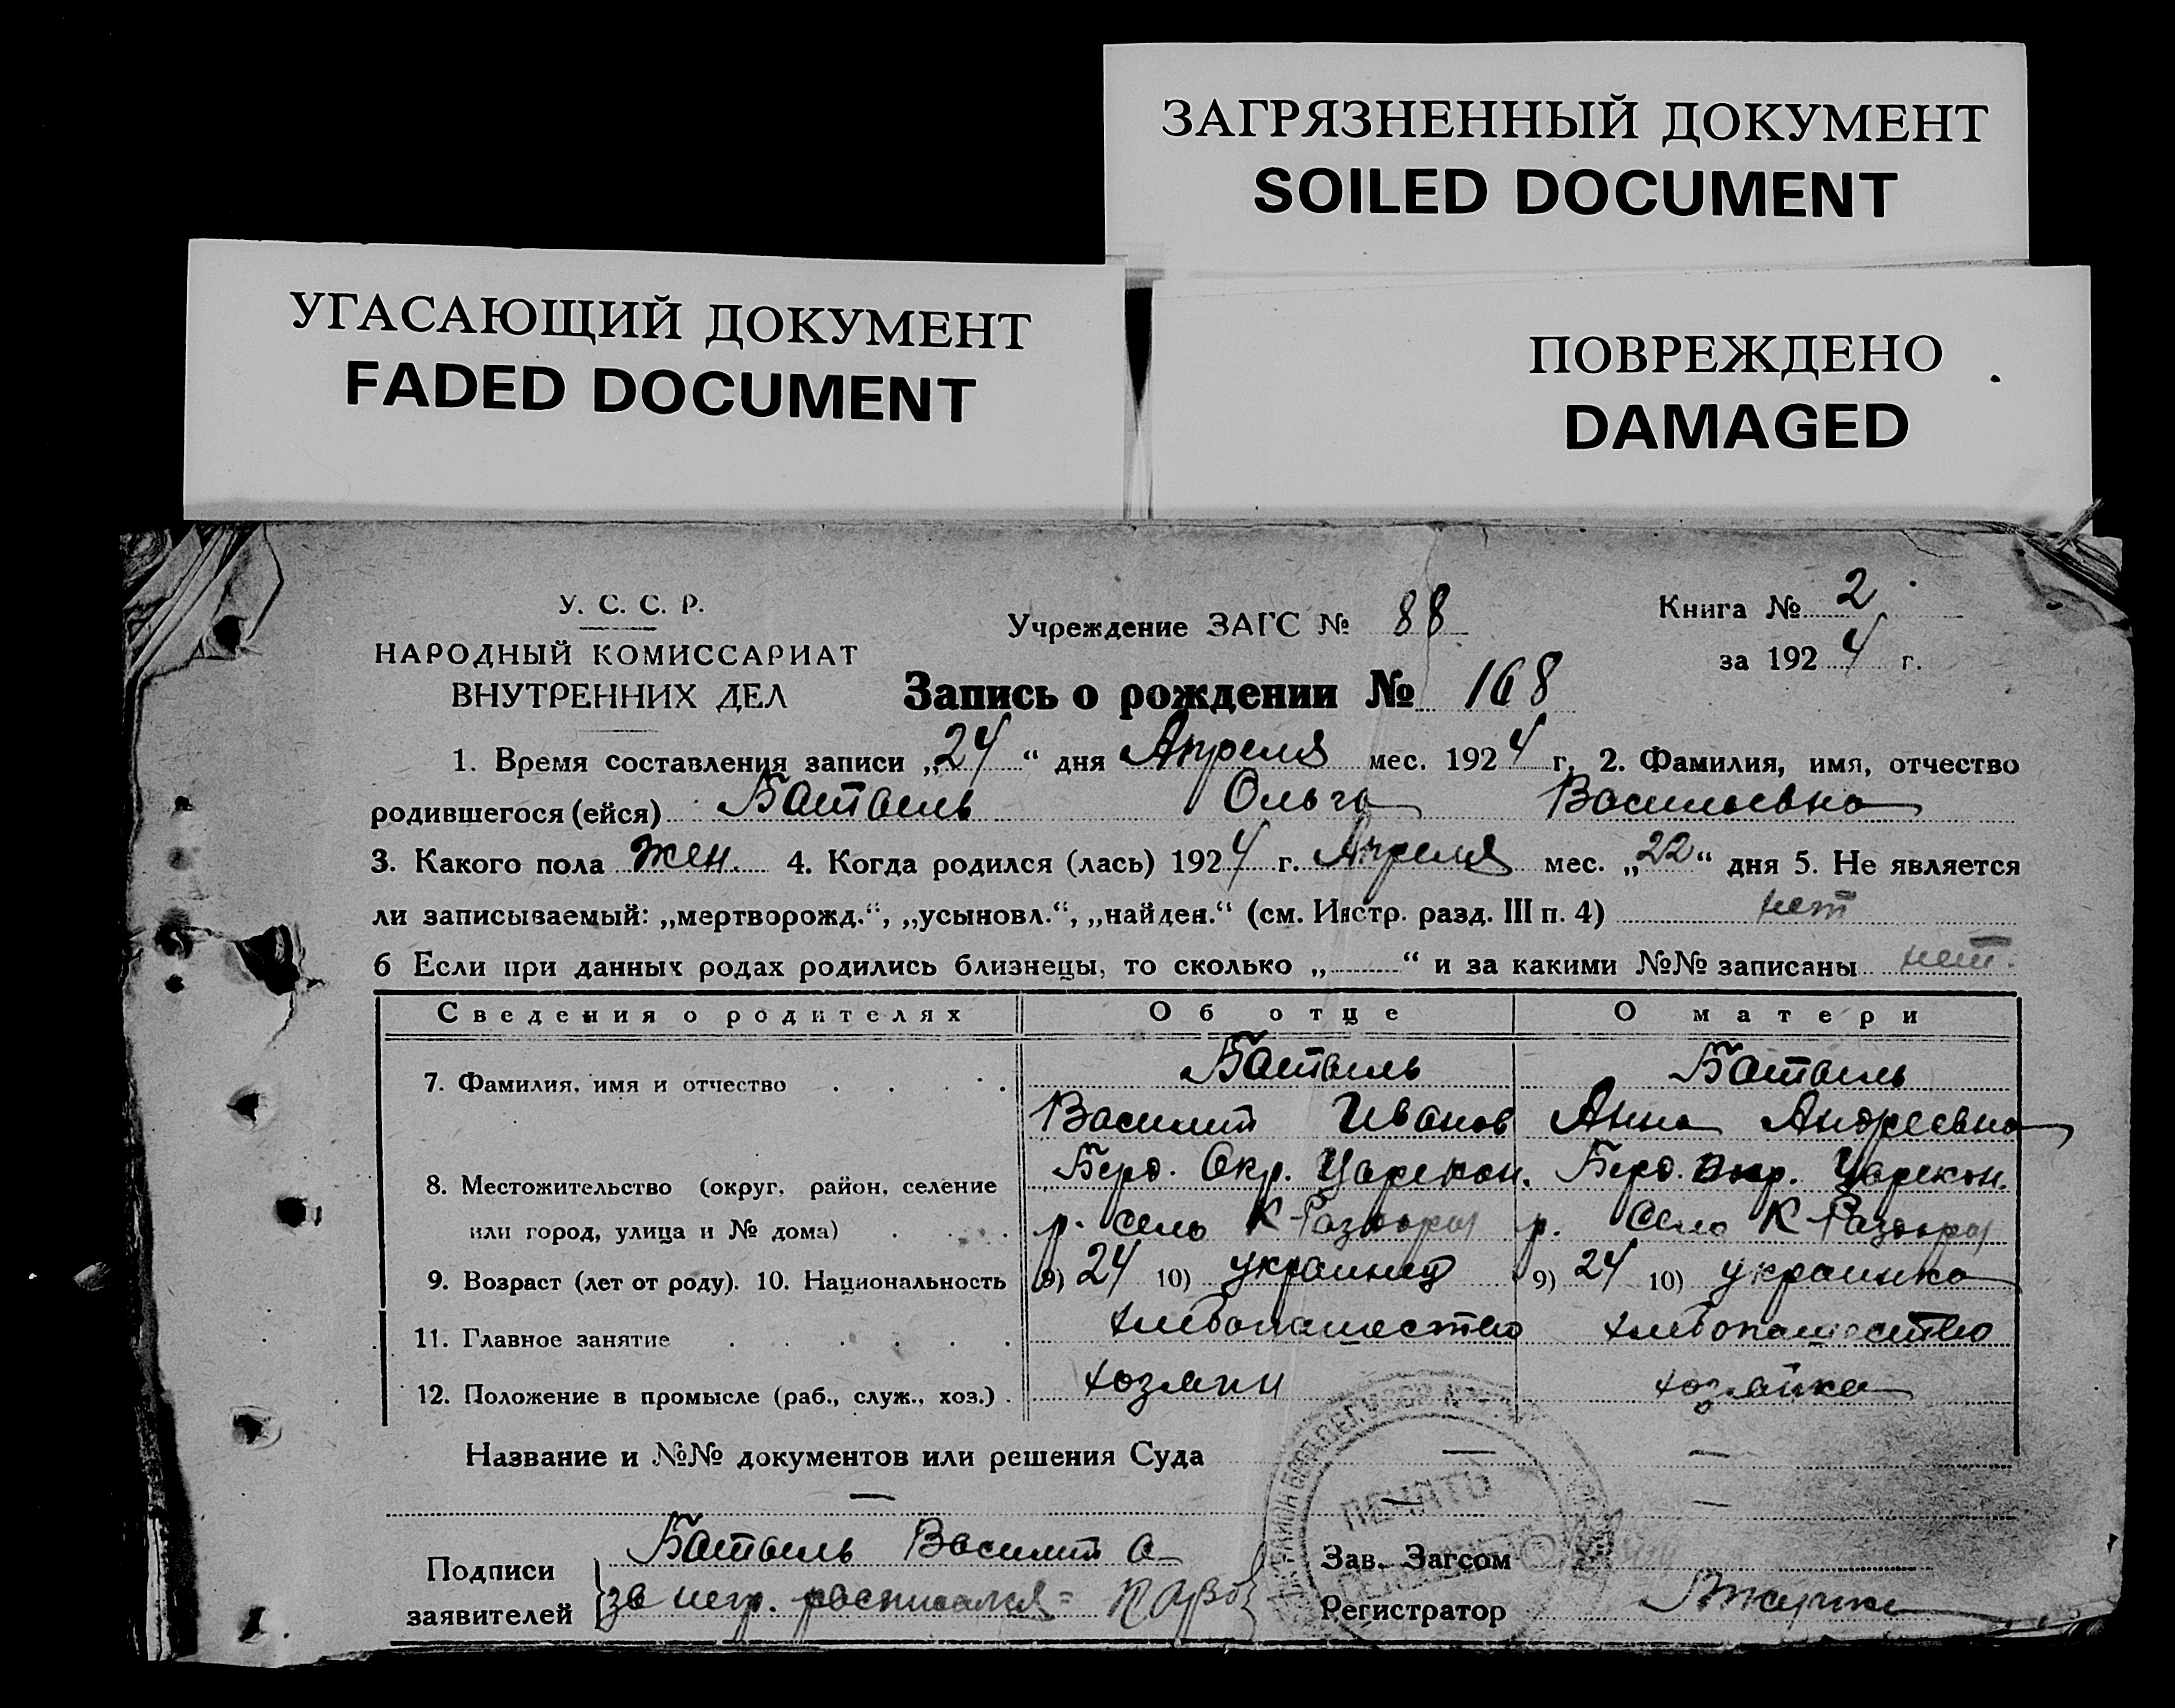 ЗАГРЯЗНЕННЫЙ ДОКУМЕНТ
SOILED DOCUMENT
УГАСАЮЩИЙ ДОКУМЕНТ
FADED DOCUMENT
ПОВРЕЖДЕНО
DAMAGED
У. С. С. Р.
НАРОДНЫЙ КОМИССАРИАТ
ВНУТРЕННИХ ДЕЛ
Учреждение ЗАГС № 88
Книга № 2
за 1924 г.
Запись о рождении № 168
1. Время составления записи „24“ дня Апреля мес. 1924 г. 2. Фамилия, имя, отчество
родившегося (ейся) Батыль Ольга Васильевна
3. Какого пола жен. 4. Когда родился (лась) 1924 г. Апреля мес. „22“ дня 5. Не является
ли записываемый: „мертворожд.“, „усыновл.“, „найден.“ (см. Инстр. разд. III п. 4) нет
6 Если при данных родах родились близнецы, то сколько „ “ и за какими №№ записаны нет.
Сведения о родителях Об отце О матери
7. Фамилия, имя и отчество Батыль Батыль
Василий Иванов Анна Андреевна
8. Местожительство (округ, район, селение Берд. Окр. Царекон. Берд. Окр. Царекон.
или город, улица и № дома) р. село К-Раздоры р. Село К-Раздоры
9. Возраст (лет от роду). 10. Национальность 9) 24 10) украинец 9) 24 10) украинка
11. Главное занятие хлебопашество хлебопашество
12. Положение в промысле (раб., служ., хоз.) хозяин хозяйка
Название и №№ документов или решения Суда — —
— — —
Подписи заявителей Батыль Василий а
за негр. расписался =
Зав. Загсом
Регистратор
ПЕЧАТЬ